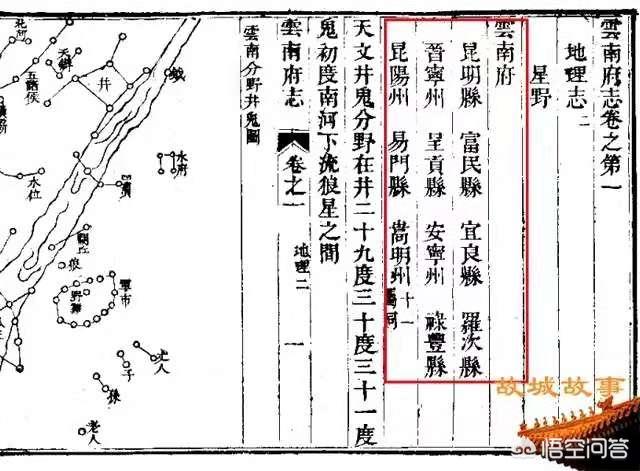 雲南府志卷之第一
地理志 二
星野
雲南府
昆明縣 富民縣 宜良縣 羅次縣
晉寧州 呈貢縣 安寧州 祿豐縣
昆陽州 易門縣 嵩明州 十一屬同
天文井鬼分野在井二十九度三十度三十一度
鬼初度南河下流狼星之間
雲南府志 卷之一 地理二 一
雲南分野井鬼圖
鉞
井
天罇
五諸侯
北河
水府
四瀆
水位
闕丘
狼
軍市
野雞
老人
子
孫
老人
故城故事
悟空问答